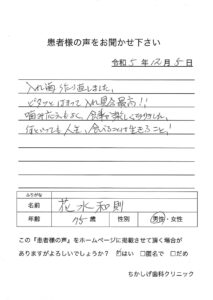 患者様の声をお聞かせ下さい
令和 5 年 12 月 5 日
入れ歯作り直しました。
ピタッとはまって入れ具合最高!!
噛み応えもよく、食事が楽しくなりました。
何といっても人生、食べることは生きること!
ふりがな
名前 花水和則
年齢 75 歳 性別 男性・女性
この『患者様の声』をホームページに掲載させて頂く場合が
ありますがよろしいでしょうか？ ☑はい □匿名で □だめ
ちかしげ歯科クリニック